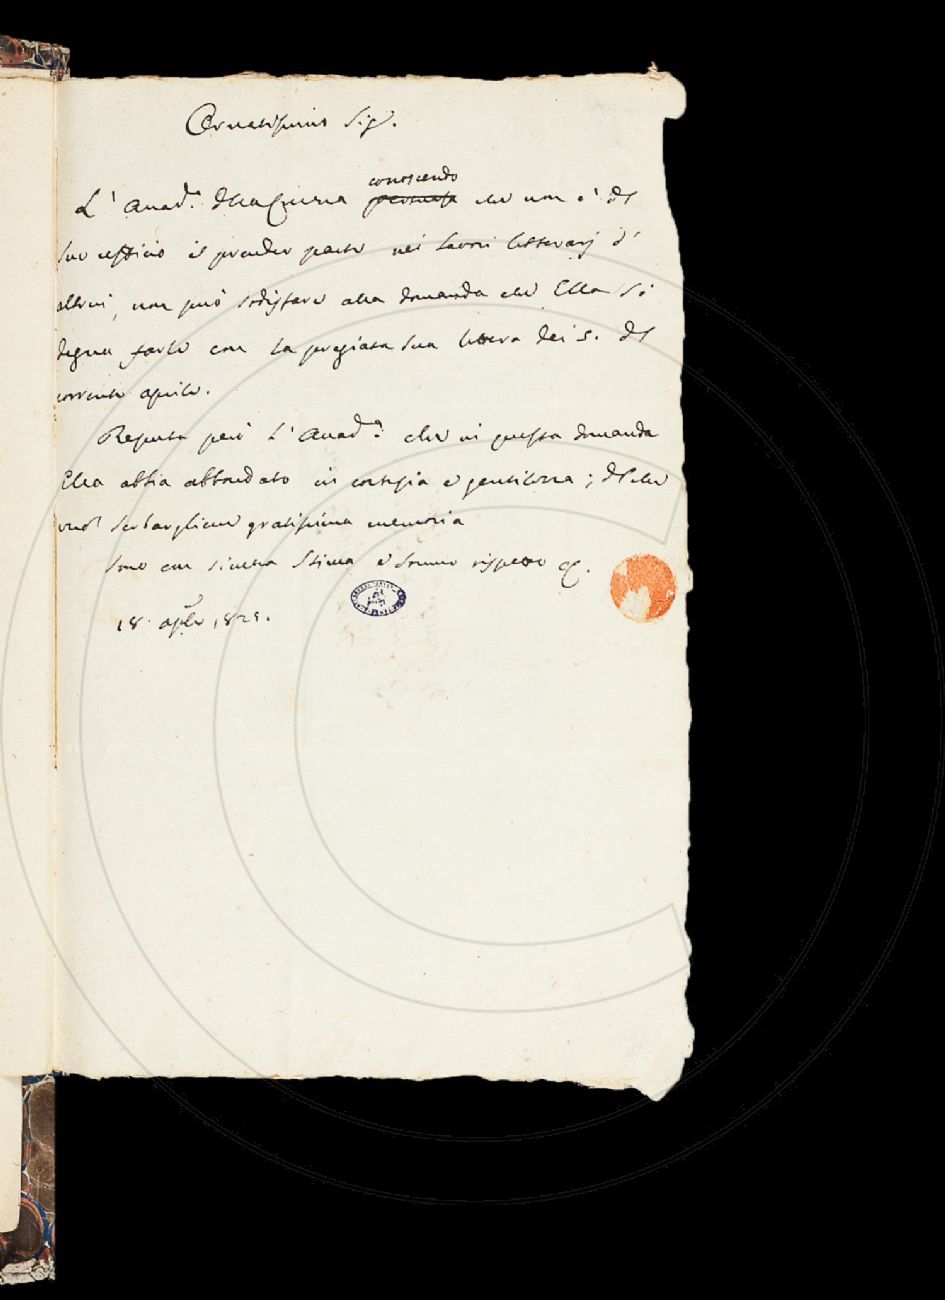 Ornatissimo Sig.
conoscendo
L' Accad.ª della Crusca persuasa che non è del
suo uffizio il prender parte nei lavori letterarj d'
altrui, non può sodisfare alla domanda che Ella si
degna farle con la pregiata sua lettera dei 5. del
corrente aprile.
Reputa però l' Accad.ª che in questa domanda
Ella abbia abbondato in cortesia e gentilezza; del che
serbargliene gratissima memoria
Sono con sincera stima e sommo rispetto
18. aple